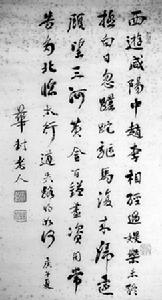 西遊咸陽中趙李相經過娛樂未終
極白日忽蹉跎驅馬復来歸還
顧望三河黃金百鎰盡資用常
苦多北臨太行道失路將如何
華封老人